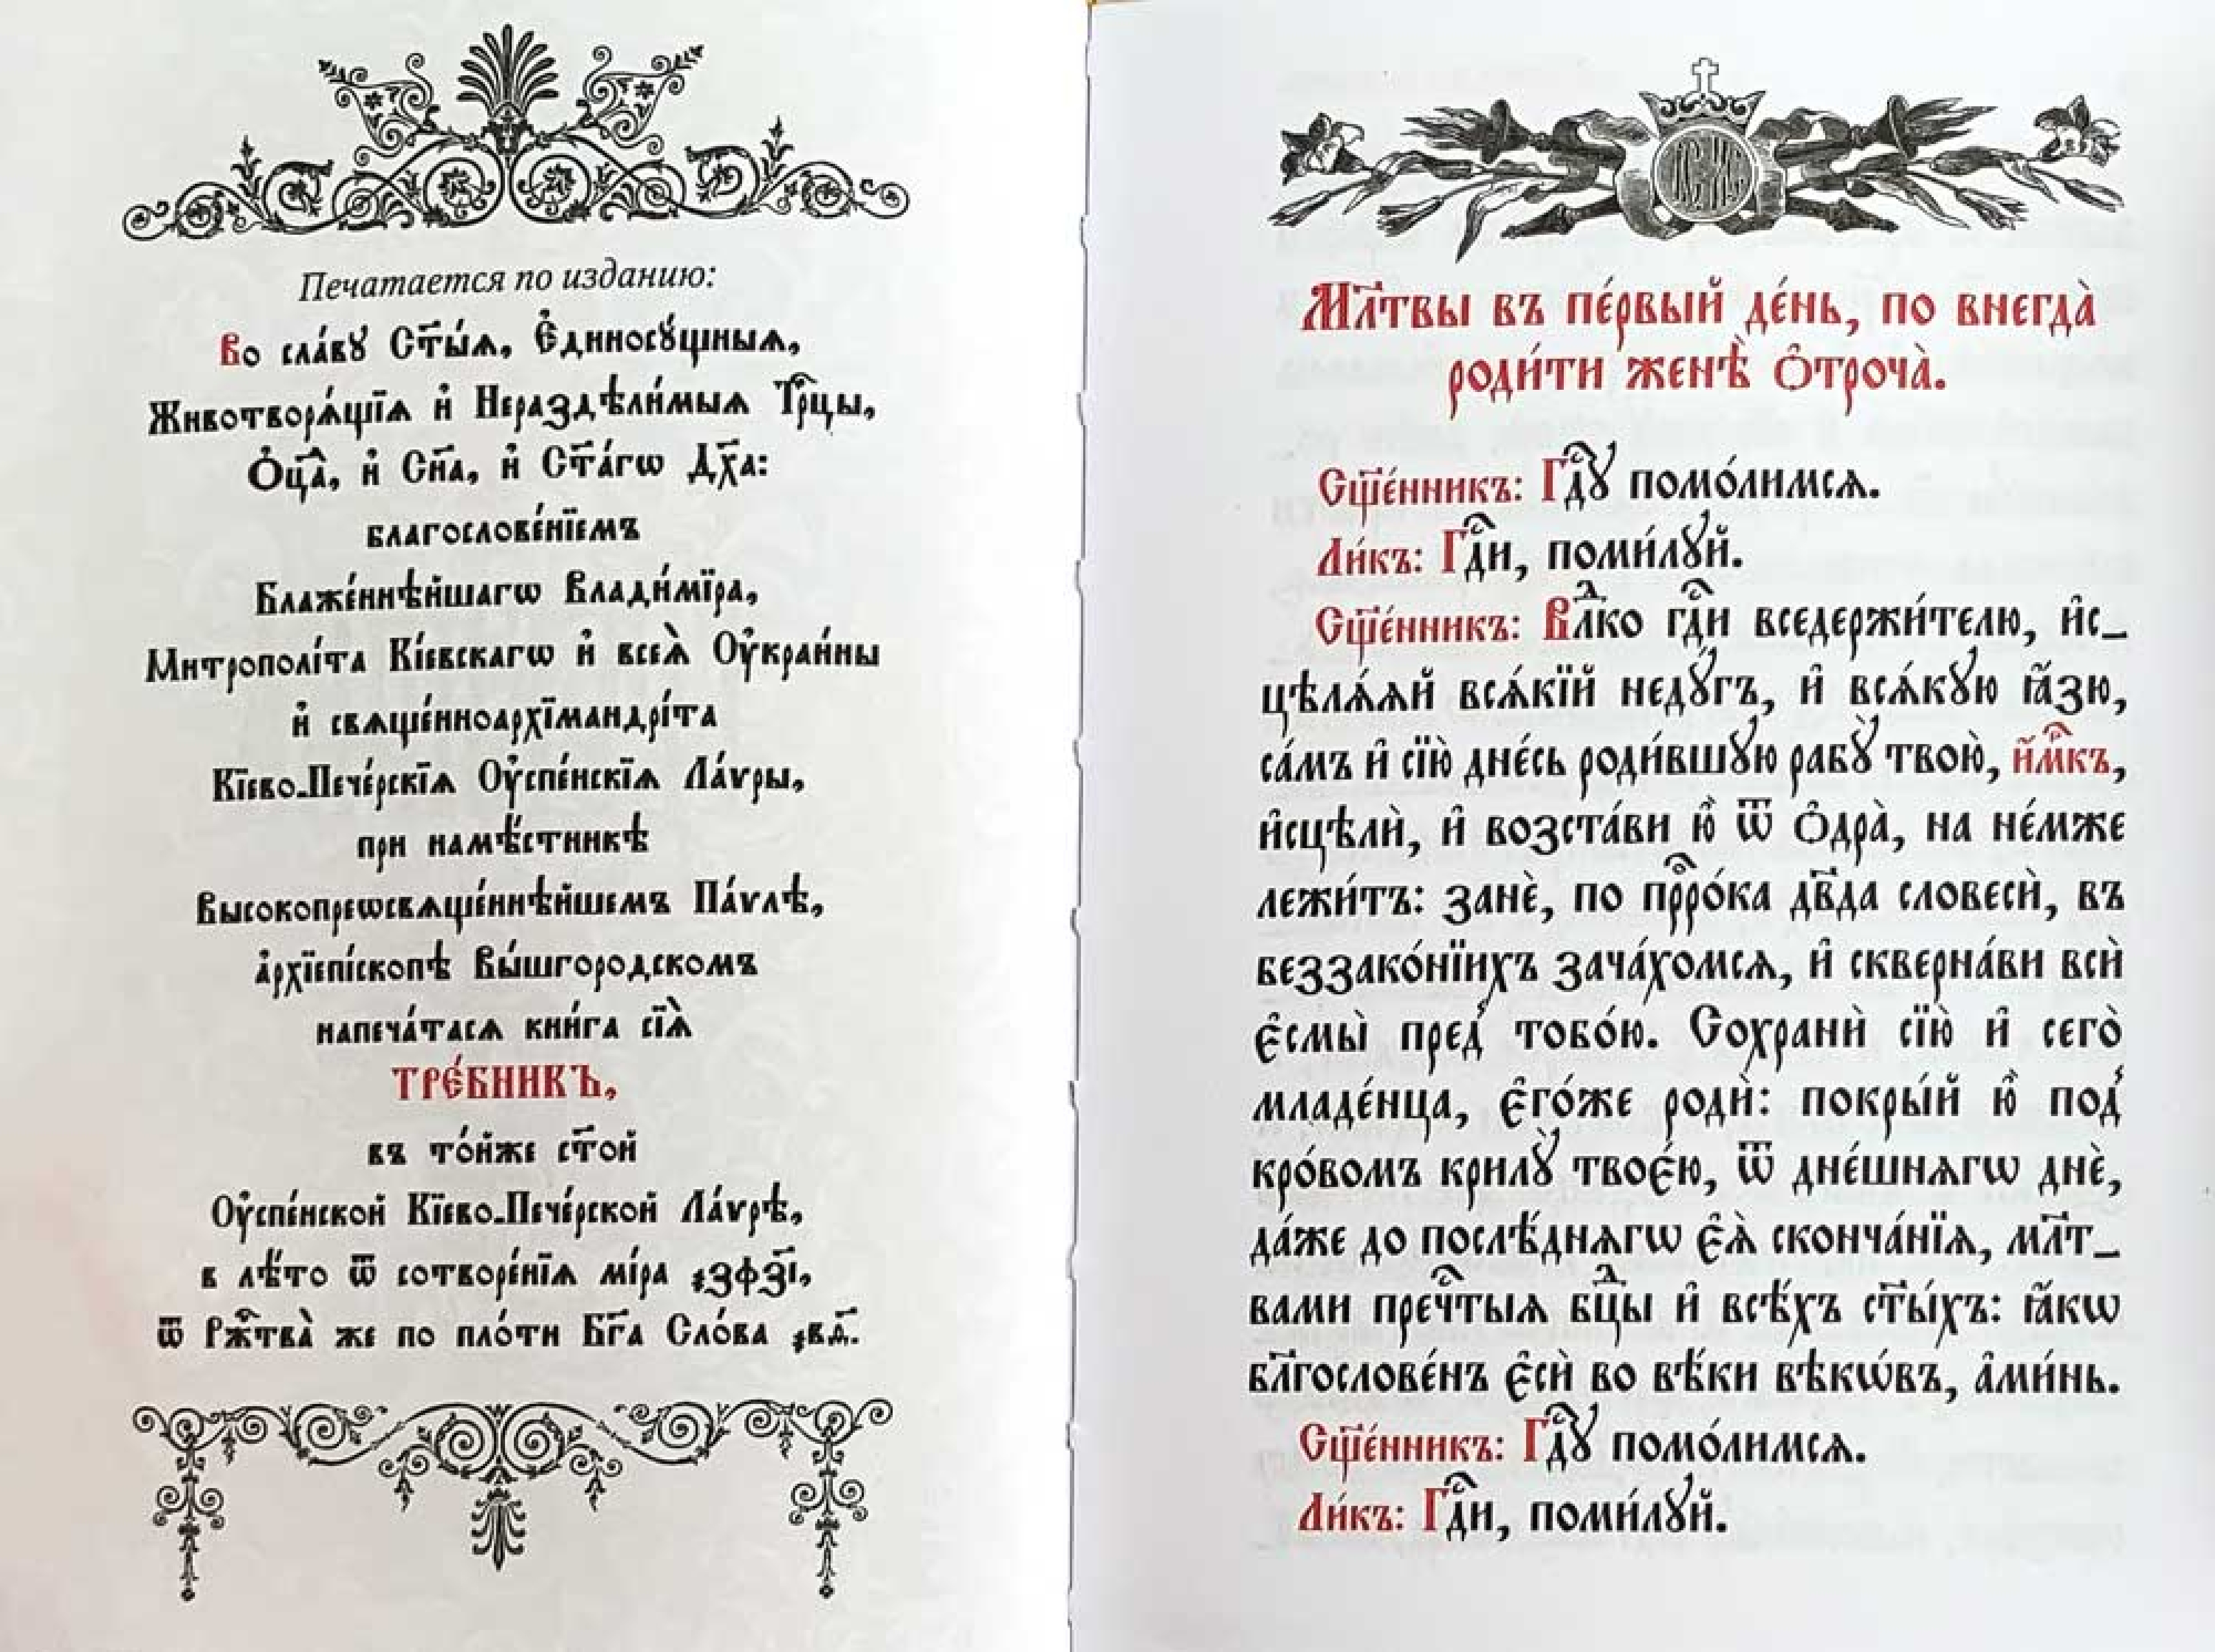 Печатается по изданию:
Во сла́вꙋ Ст҃ы́ѧ, Є҆диносꙋ́щныѧ,
Животворѧ́щїѧ и҆ Нераздѣли́мыѧ Трⷪ҇цы,
Ѻ҆ц҃а̀, и҆ Сн҃а, и҆ Ст҃а́гѡ Дх҃а:
благослове́нїемъ
Блаже́ннѣйшагѡ Влади́мїра,
Митрополі́та Кі́евскагѡ и҆ всеѧ̀ Оу҆краи́ны
и҆ свѧще́нноархїмандрі́та
Кїево-Пече́рскїѧ Оу҆спе́нскїѧ Ла́ѵры,
при намѣ́стникѣ
Высокопреѡсвѧще́ннѣйшемъ Па́ѵлѣ,
а҆рхїепі́скопѣ Вы́шгородскомъ
напеча́тасѧ кни́га сїѧ̀
ТРЕ́БНИКЪ,
въ то́йже ст҃ой
Оу҆спе́нской Кїево-Пече́рской Ла́ѵрѣ,
в лѣ́то ѿ сотворе́нїѧ мі́ра ҂зфз҃і,
ѿ Ржⷭ҇тва̀ же по пло́ти Бг҃а Сло́ва ҂вѳ҃.
Мл҃твы въ пе́рвый де́нь, по внегда̀
роди́ти женѣ̀ ѻ҆троча̀.
Сщ҃е́нникъ: Гдⷭ҇ꙋ помо́лимсѧ.
Ли́къ: Гдⷭ҇и, поми́лꙋй.
Сщ҃е́нникъ: Влⷣко гдⷭ҇и вседержи́телю, и҆с_
цѣлѧ́ѧй всѧ́кїй недꙋ́гъ, и҆ всѧ́кꙋю ꙗ҆́зю,
са́мъ и҆ сїю̀ дне́сь роди́вшꙋю рабꙋ̀ твою̀, и҆́м҃къ,
и҆сцѣлѝ, и҆ возста́ви ю҆̀ ѿ ѻ҆дра̀, на не́мже
лежи́тъ: занѐ, по прⷪ҇ро́ка дв҃да словесѝ, въ
беззако́нїихъ зача́хомсѧ, и҆ скверна́ви всѝ
є҆смы̀ пред̾ тобо́ю. Сохранѝ сїю̀ и҆ сего̀
младе́нца, є҆го́же родѝ: покры́й ю҆̀ под̾
кро́вомъ крилꙋ̀ твоє́ю, ѿ дне́шнѧгѡ днѐ,
да́же до послѣ́днѧгѡ є҆ѧ̀ сконча́нїѧ, мл҃т_
вами пречⷭ҇тыѧ бцⷣы и҆ всѣ́хъ ст҃ы́хъ: ꙗ҆́кѡ
бл҃гослове́нъ є҆сѝ во вѣ́ки вѣкѡ́въ, а҆ми́нь.
Сщ҃е́нникъ: Гдⷭ҇ꙋ помо́лимсѧ.
Ли́къ: Гдⷭ҇и, поми́лꙋй.